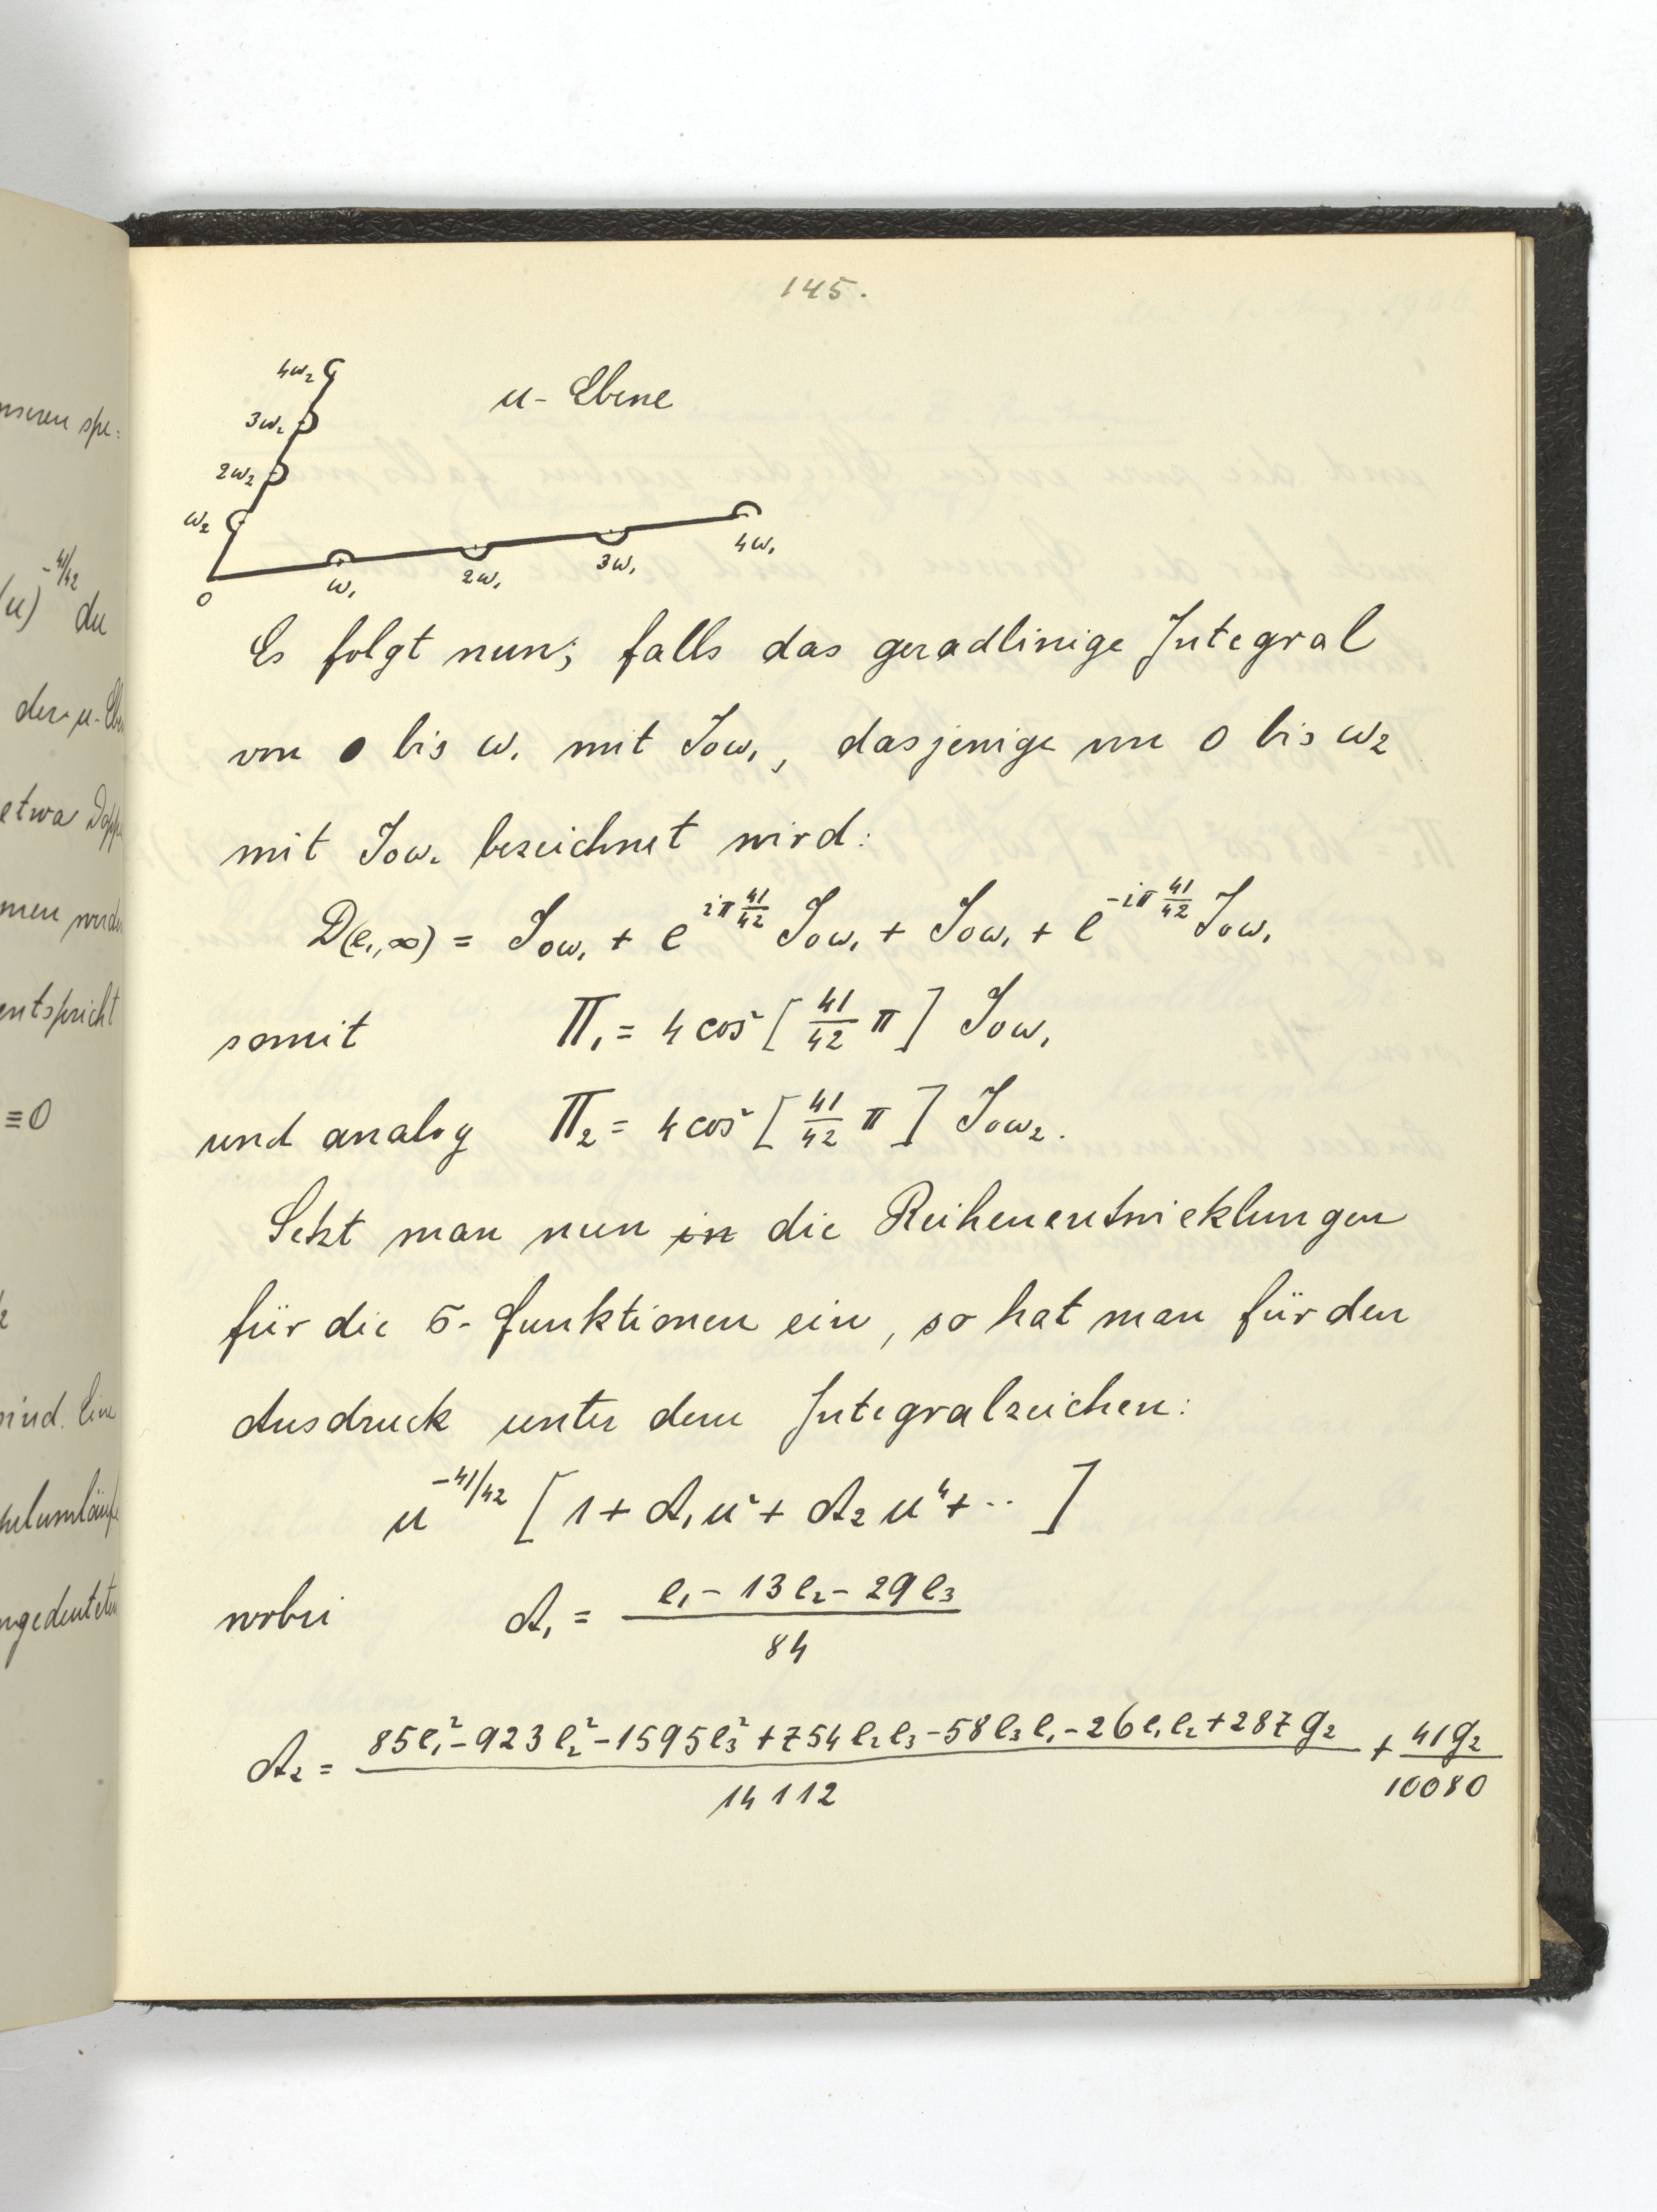 145.
4ω₂
3ω₂
2ω₂
ω₂
0 ω₁ 2ω₁ 3ω₁ 4ω₁
u-Ebene
Es folgt nun; falls das geradlinige Integral
von 0 bis ω₁ mit J₀ω₁, dasjenige von 0 bis ω₂
mit J₀ω₂ bezeichnet wird:
D(e₁,∞) = J₀ω₁ + e^{iπ 41/42} J₀ω₁ + J₀ω₁ + e^{-iπ 41/42} J₀ω₁
somit Π₁ = 4 cos² [41/42 π] J₀ω₁
und analog Π₂ = 4 cos² [41/42 π] J₀ω₂.
Setzt man nun in die Reihenentwicklungen
für die σ-Funktionen ein, so hat man für den
Ausdruck unter dem Integralzeichen:
u^{-41/42} [1 + A₁u² + A₂u⁴ + ·· ]
wobei A₁ = (e₁ - 13e₂ - 29e₃)/84
A₂ = (85e₁² - 923e₂² - 1595e₃² + 754e₂e₃ - 58e₃e₁ - 26e₁e₂ + 287g₂)/14112 + 41g₂/10080
(u)^{-41/42} du
etwa
entspricht
≡0